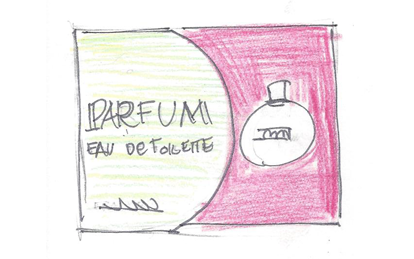 PARFUMI
EAU DE TOILETTE